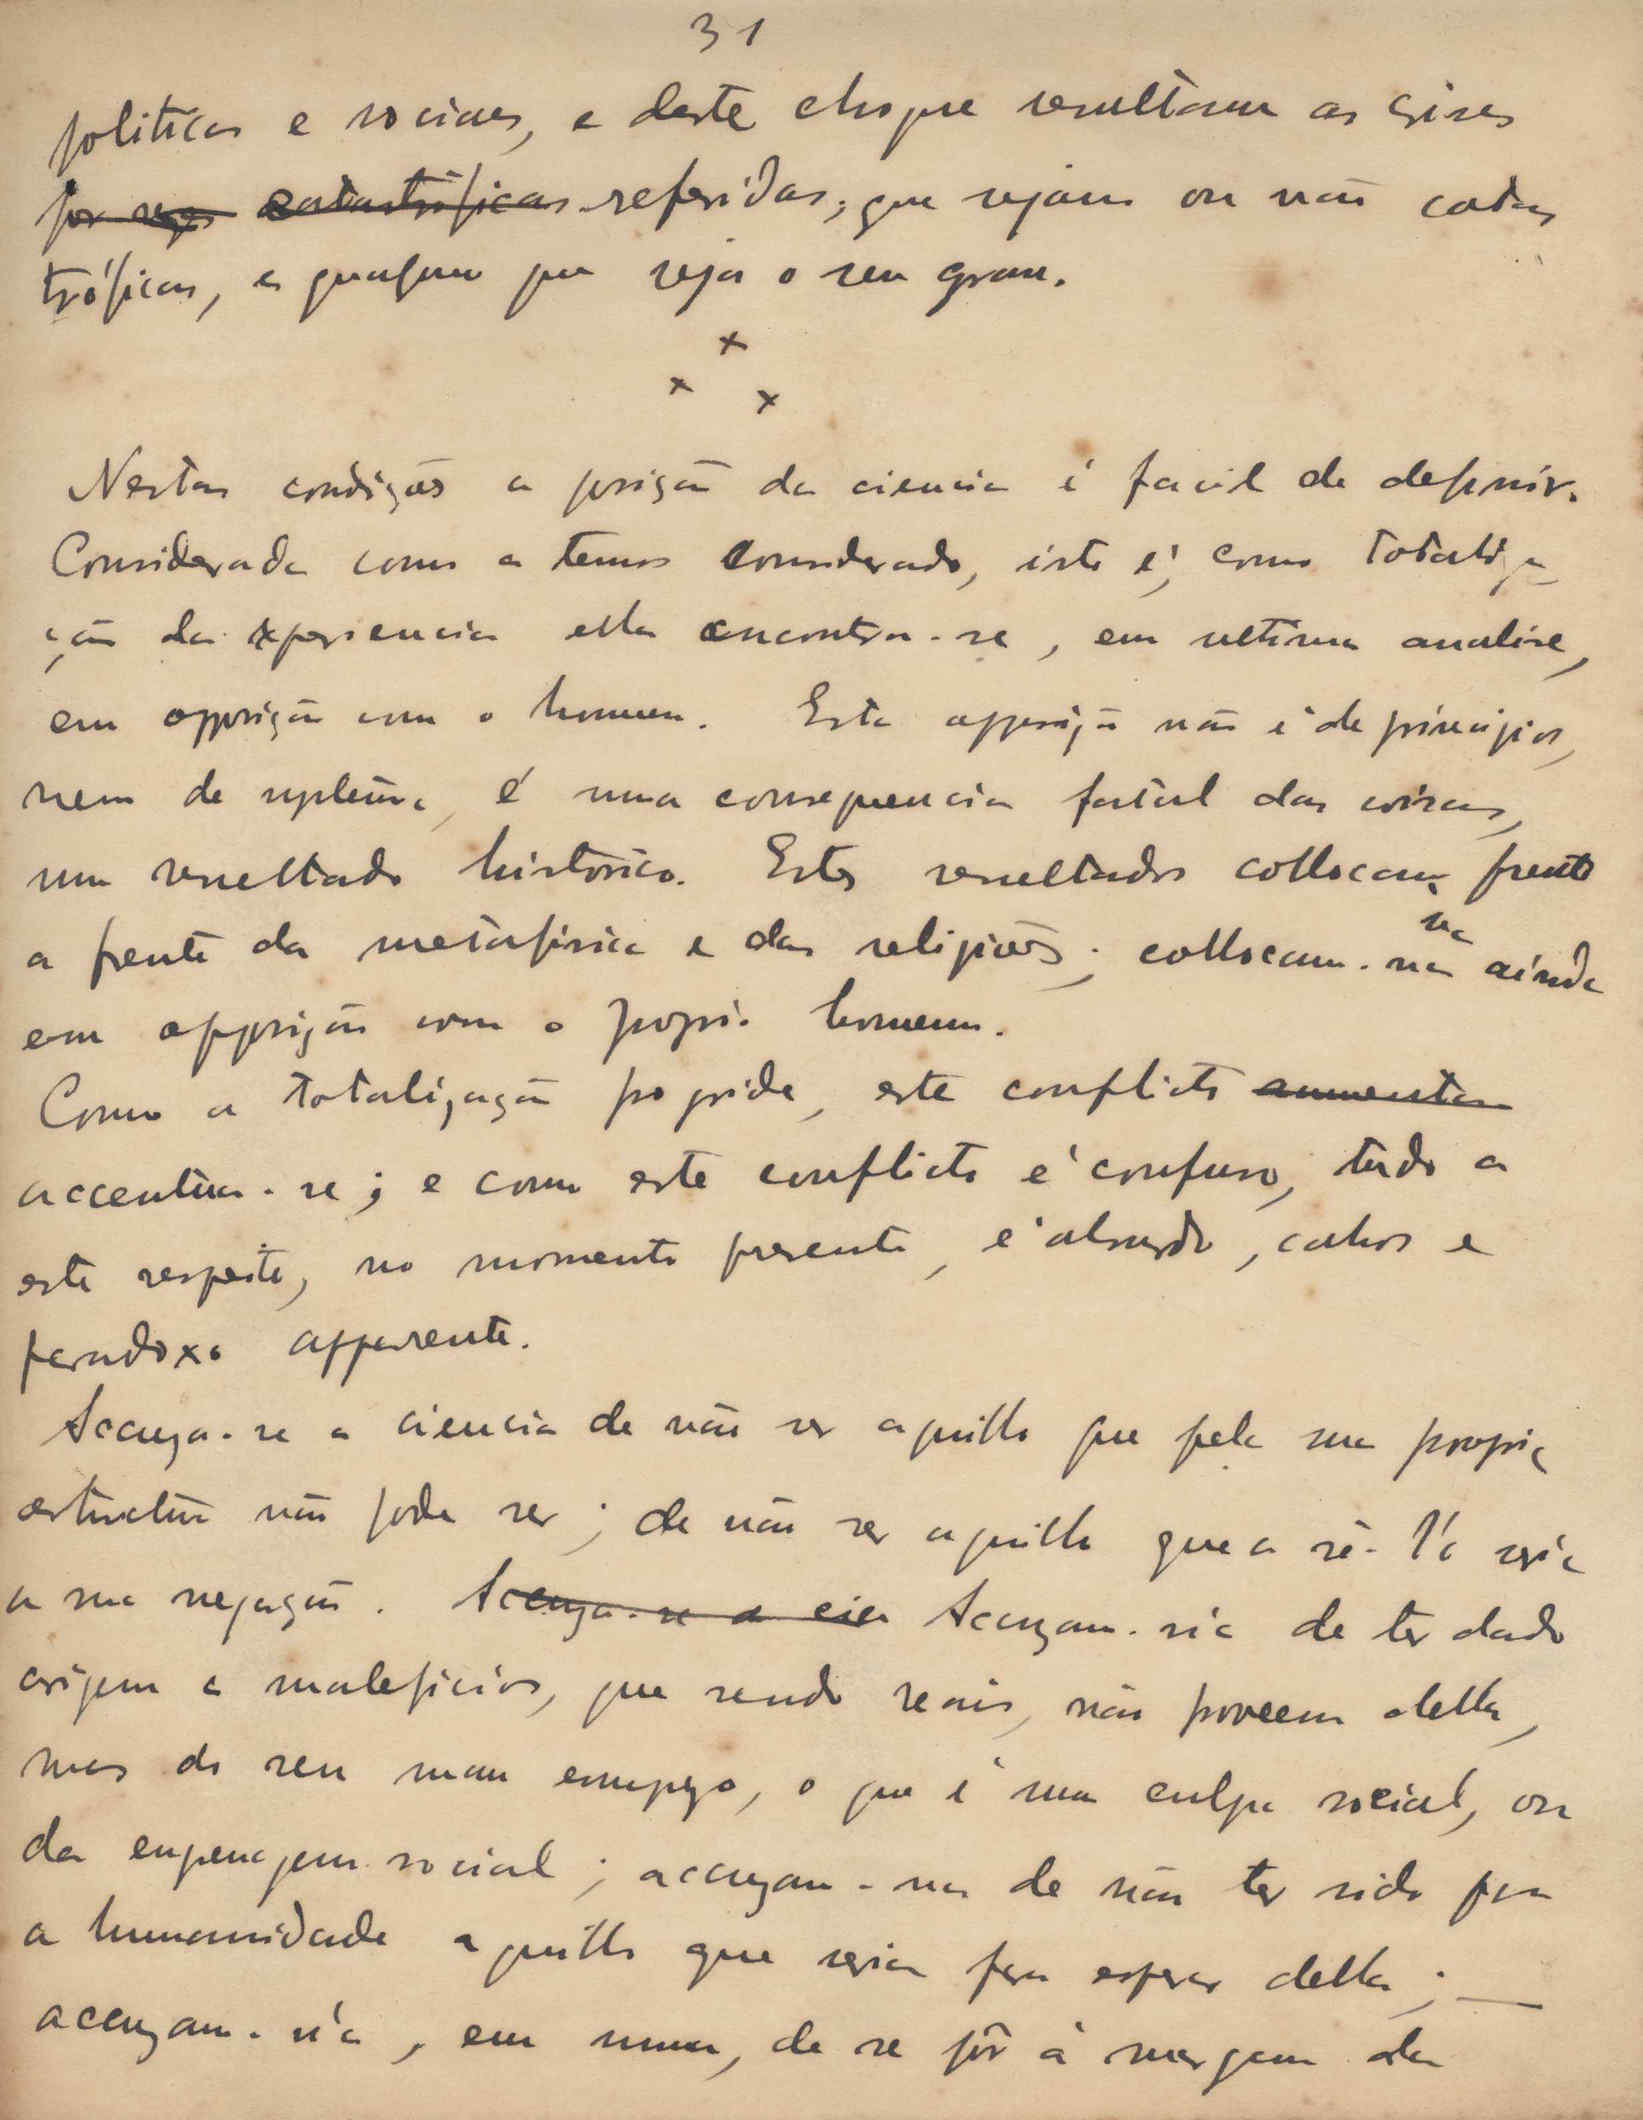 31
politicas e sociaes, e deste choque resultam as crises
por vezes catastróficas referidas; que sejam ou não catas
tróficas, e qualquer que seja o seu grau.
x
x x
Nestas condições a posição da ciencia é facil de definir.
Considerada como a temos considerado, isto é, como totaliza
ção da experiencia ella encontra-se, em ultima analise,
em opposição com o homem. Esta opposição não é de principios,
nem de systema, é uma consequencia fatal das coisas,
um resultado historico. Estes resultados collocam frente
a frente da metafisica e das religiões; collocam-na ainda
na
em opposição com o proprio homem.
Como a totalização progride, este conflicto aumenta
accentua-se; e como este conflicto é confuso, tudo a
este respeito, no momento presente, é absurdo, cahos e
paradoxo apparente.
Accuza-se a ciencia de não ser aquillo que pela sua propria
estructura não pode ser; de não ser aquillo que a sê-lo seria
a sua negação. Accuza-se a cien Accuzam-na de ter dado
origem a maleficios, que sendo reais, não proveem della,
mas do seu mau emprego, o que é uma culpa social, ou
da engrenagem social; accuzam-na de não ter sido para
a humanidade aquillo que seria para esperar della;
accuzam-n'a, em suma, de se pôr à margem da